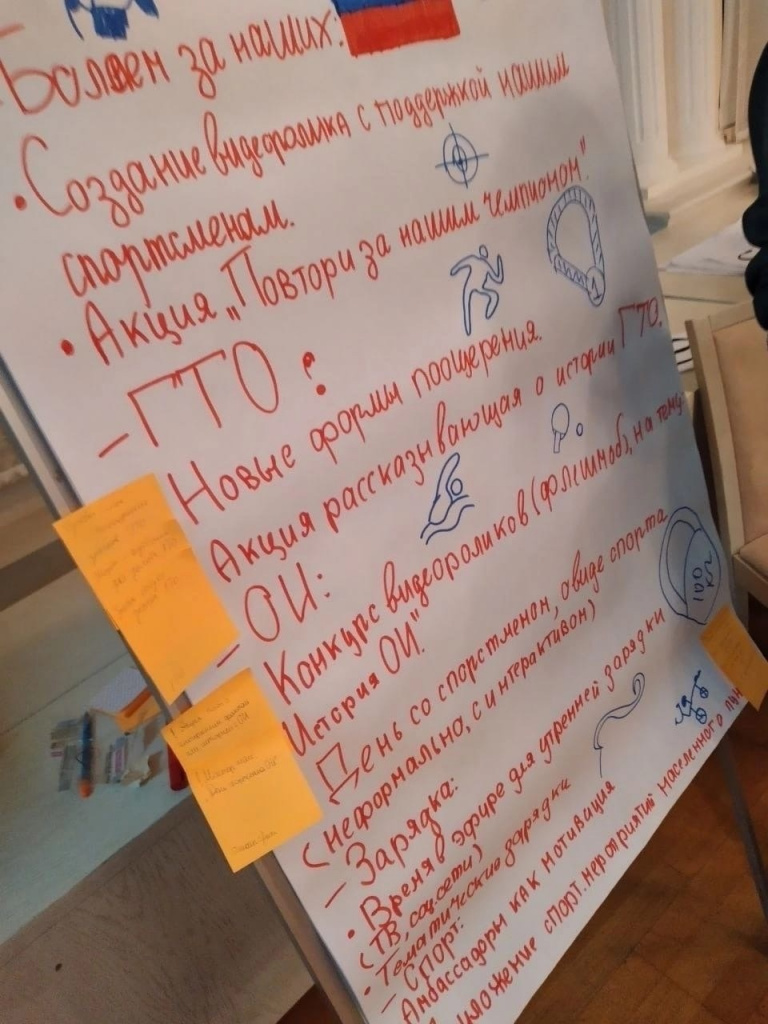 - Болеем за наших:
• Создание видеоролика с поддержкой нашим
спортсменам.
• Акция „Повтори за нашим чемпионом".
- ГТО:
Новые формы поощрения.
Акция рассказывающая о истории ГТО.
- ОИ:
Конкурс видеороликов (флешмоб), на тему
История ОИ"
День со спорстменом, о виде спорта
(неформально, с интерактивом)
- Зарядка:
• Время в эфире для утренней зарядки
(ТВ, соц.сети)
• Тематические зарядки
- Спорт:
Амбассадоры как мотивация
спорт. мероприятий населенного
100
КГ